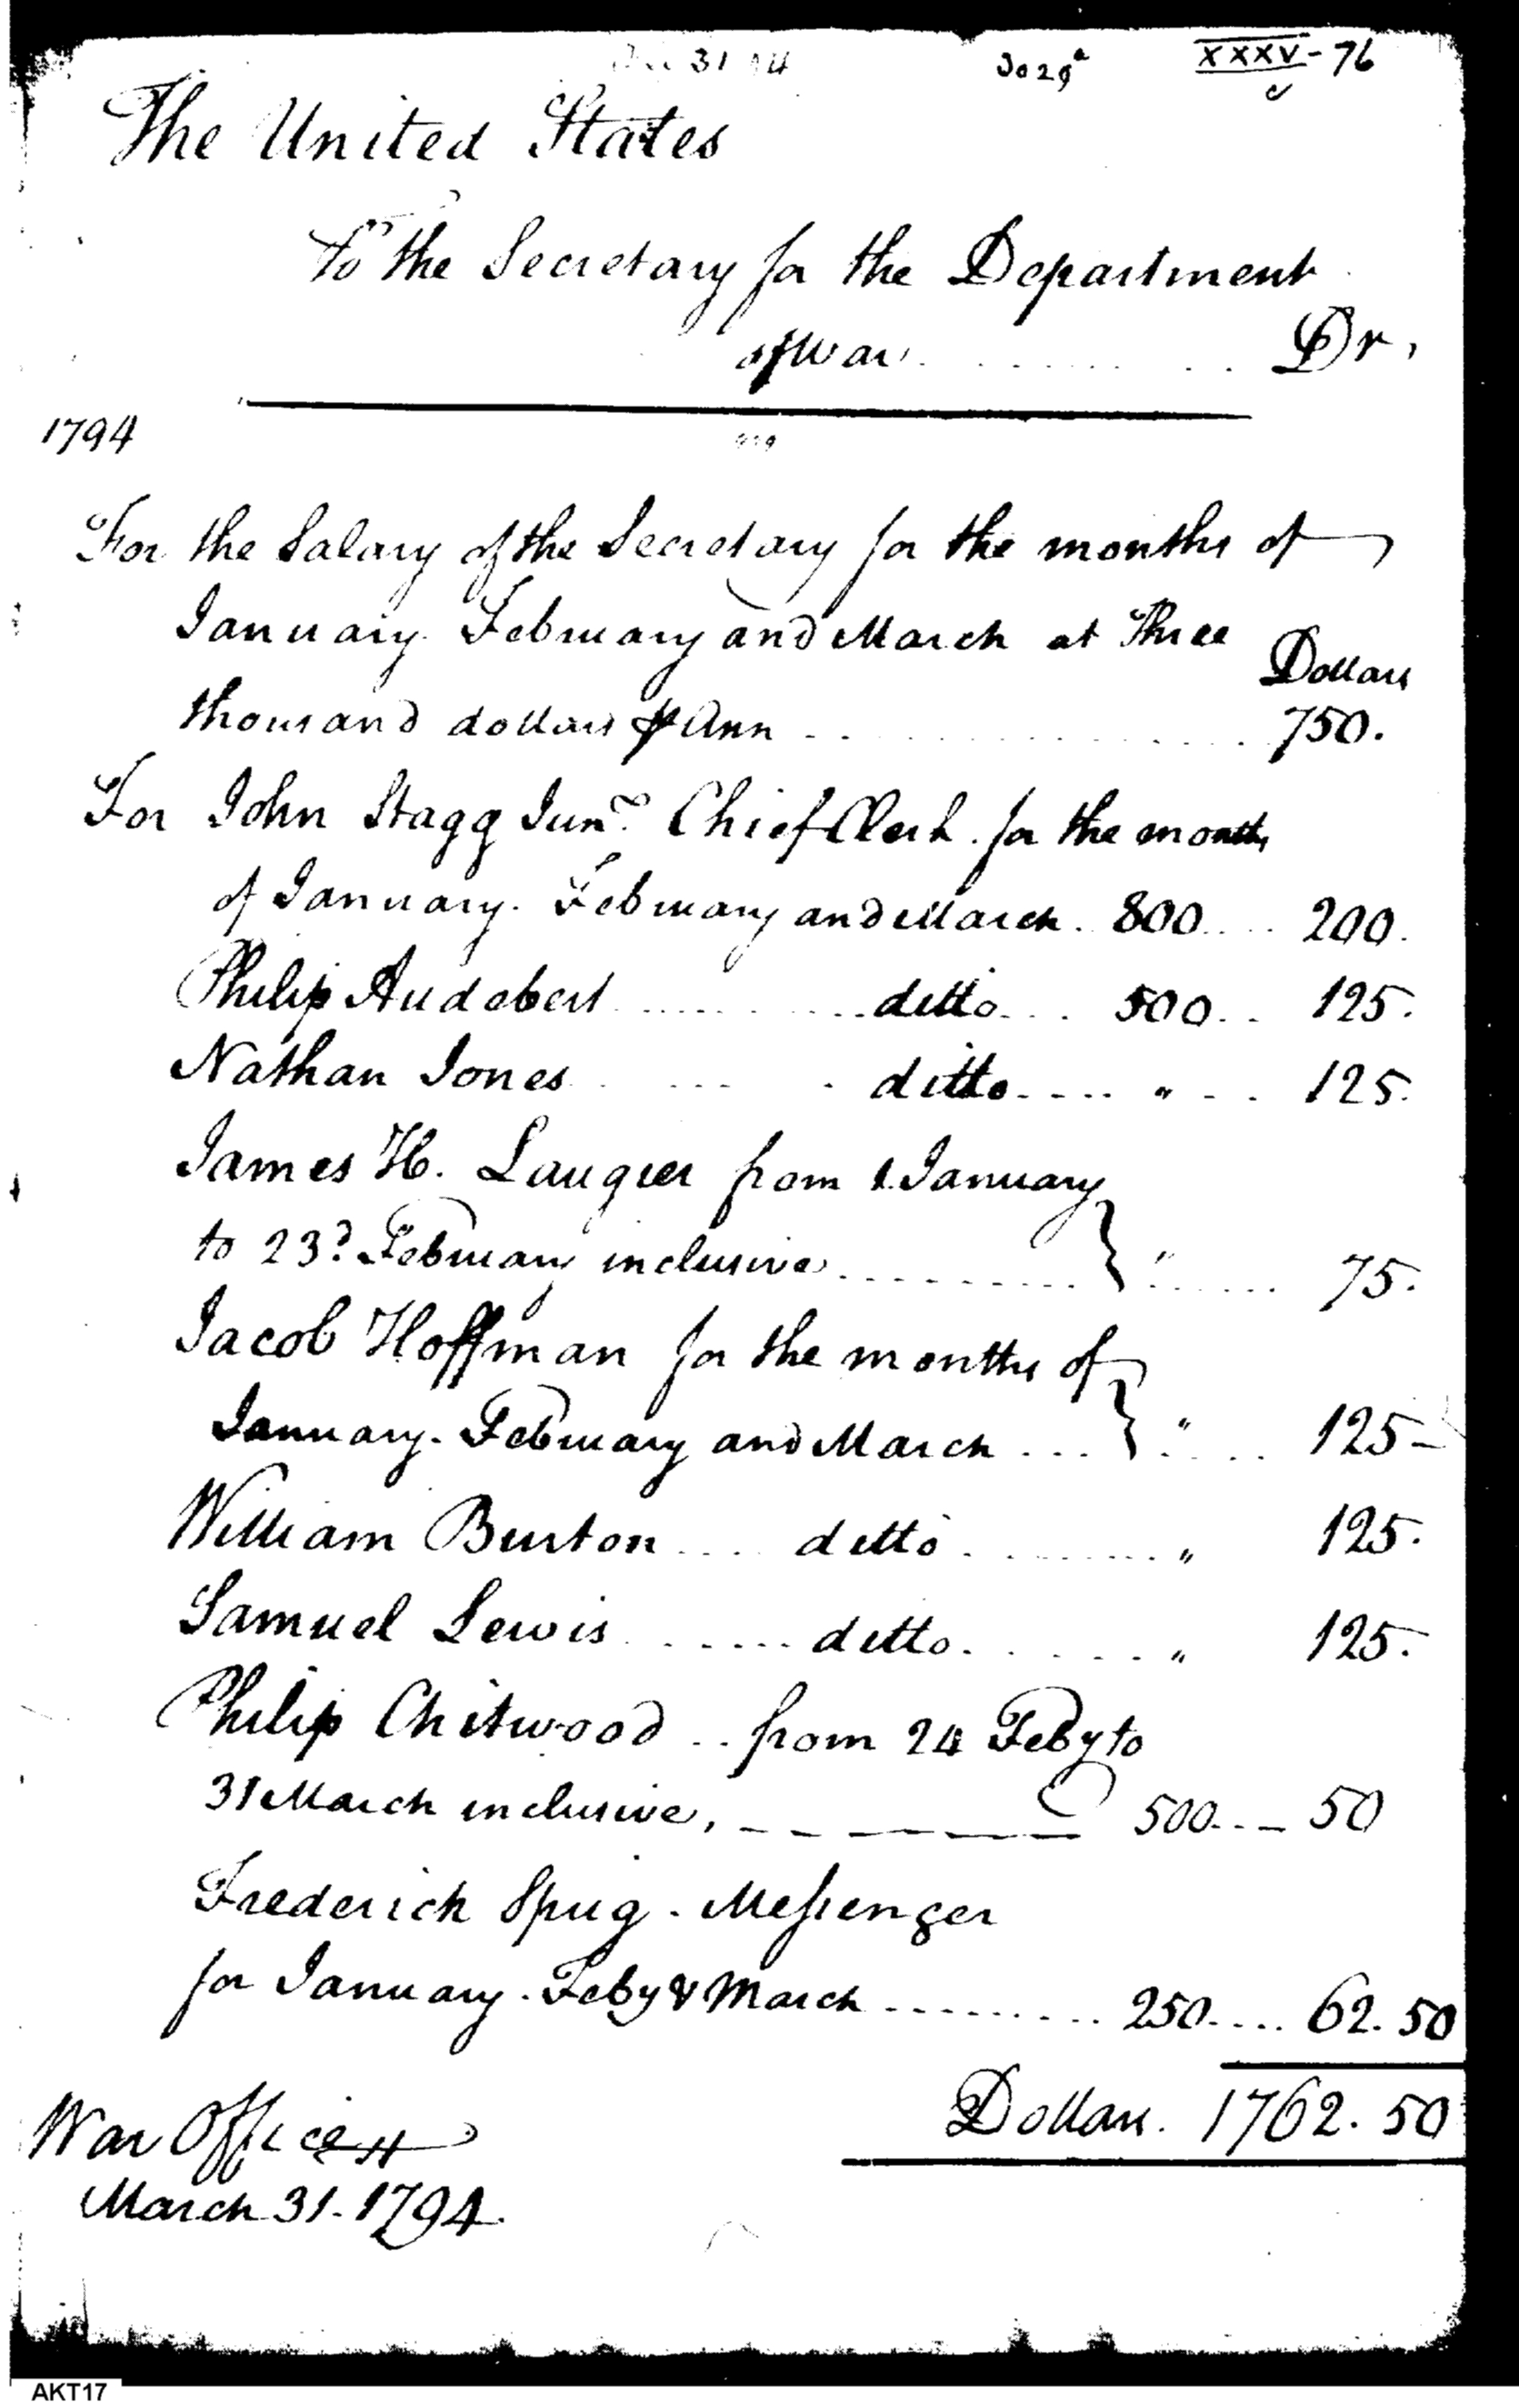 31 94 3029a XXXV-76
The United States
To the Secretary for the Department
of War . . . . . . . . Dr.
1794
For the Salary of the Secretary for the months of
January February and March at Three
Dollars
thousand dollars ⅌ Ann . . . . . . . . . 750.
For John Stagg Junr. Chief Clerk. for the months
of January. February and March. 800.... 200.
Philip Audebert ........... ditto... 500... 125.
Nathan Jones . . . . . ditto.... " - . . 125.
James H. Laugier from 1. January
to 23d. February inclusive .......... } " ...... 75.
Jacob Hoffman for the months of
January. February and March ... } " .... 125-
William Burton .... ditto .......... " 125.
Samuel Lewis ....... ditto....... " 125.
Philip Chitwood .. from 24 Feby to
31 March inclusive, - - - - - 500... - 50
Frederick Spug. Messenger
for January. Feby & March .......... 250.... 62.50
Dollars. 1762.50
War Office
March 31. 1794.
AKT17